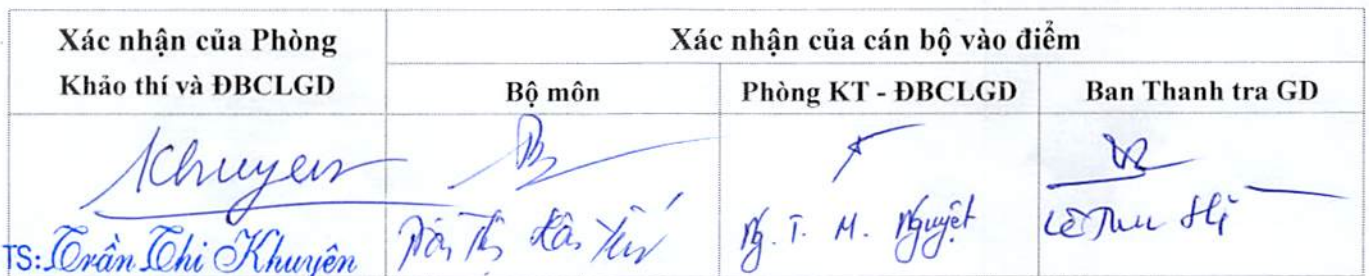 Xác nhận của Phòng
Khảo thí và ĐBCLGD
Xác nhận của cán bộ vào điểm
Bộ môn
Phòng KT - ĐBCLGD
Ban Thanh tra GD
Khuyen
TS: Trần Thi Khuyên
Ng. T. M. Nguyệt
Lê Thu